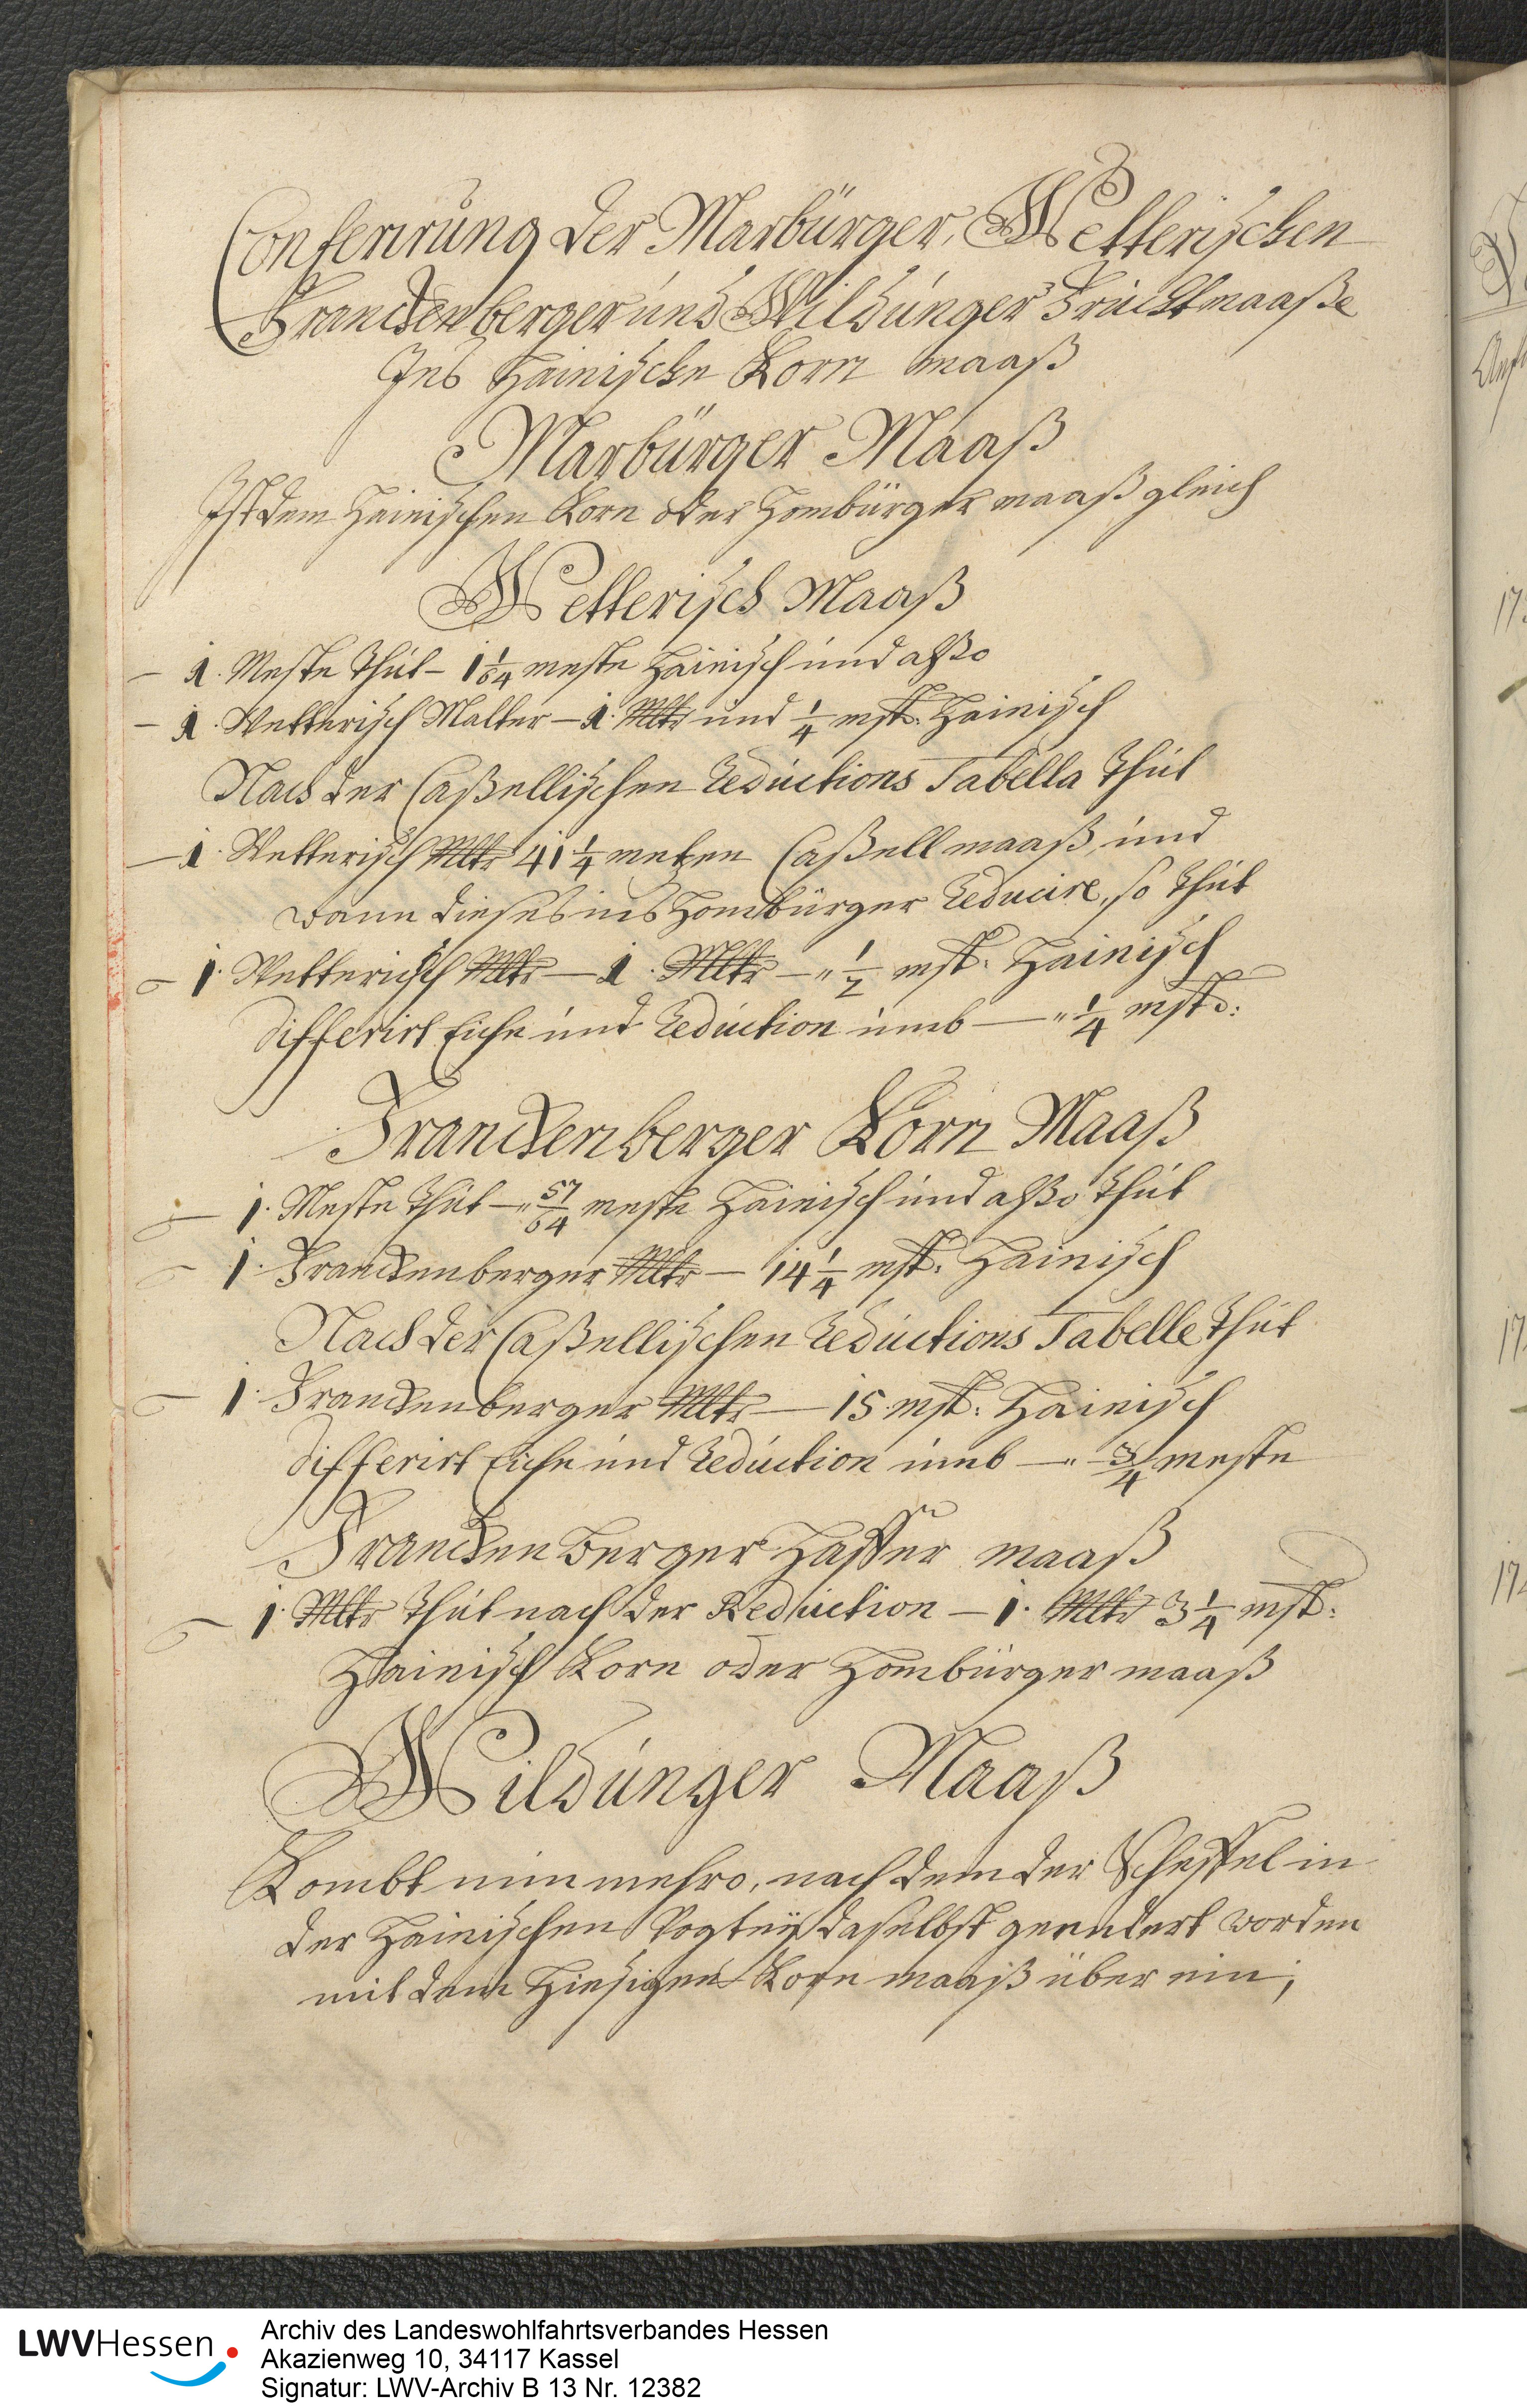 Conferirung der Marbürger, Wetterischen
Franckenberger und Wildunger Fruchtmaaße
Ins Hainische Korn maaß
Marbürger Maaß
Ist dem Hainischen Korn oder Hombürger maaß gleich
Wetterisch Maaß
— 1. Meste thut — 1 1/64 meste Hainisch und also
— 1. Wetterisch Malter — 1. Mltr und 1/4 mst. Hainisch
Nach der Caßellischen Reductions Tabella thut
— 1. Wetterisch Mltr 41 1/4 metzen Caßell maaß, und
wann dieses ins Hombürger Reducire, so thut
— 1. Wetterisch Mltr — 1. Mltr — „ 1/2 mst. Hainisch
Differirt Eiche und Reduction umb — „ 1/4 mst:
Franckenberger Korn Maaß
— 1. Meste thut — „ 57/64 meste Hainisch und also thut
— 1. Franckenberger Mltr — 14 1/4 mst. Hainisch
Nach der Caßellischen Reductions Tabelle thut
— 1. Franckenberger Mltr — 15 mst: Hainisch
Differirt Eiche und Reduction umb — „ 3/4 meste
Franckenberger Haffer maaß
— 1. Mltr thut nach der Reduction — 1. Mltr 3 1/4 mst:
Hainisch Korn oder Hombürger maaß
Wildunger Maaß
Kombt nun mehro, nach dem der Scheffel in
der Hainischen Vogteÿ daselbst geendert worden
mit dem Hiesigen Korn maaß über ein;
LWVHessen
Archiv des Landeswohlfahrtsverbandes Hessen
Akazienweg 10, 34117 Kassel
Signatur: LWV-Archiv B 13 Nr. 12382